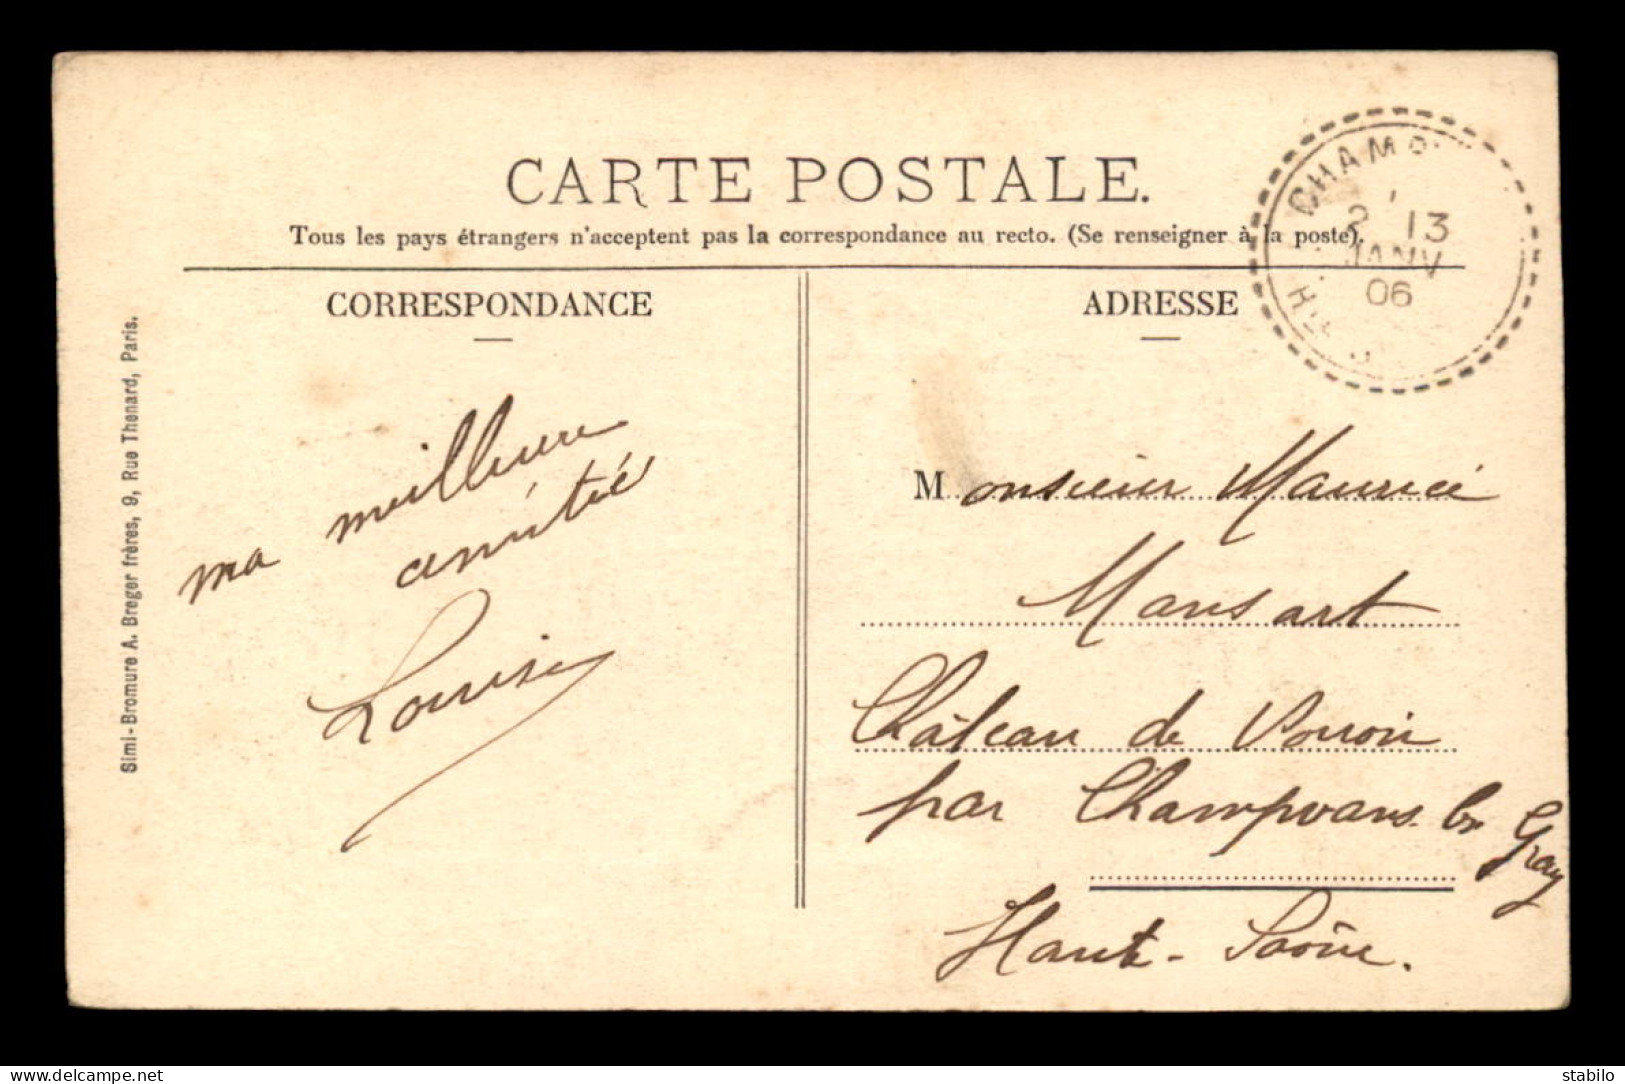 CARTE POSTALE.
Tous les pays étrangers n'acceptent pas la correspondance au recto. (Se renseigner à la poste).
CORRESPONDANCE
ADRESSE
CHAMP
2 13
JANV
06
Hte
Simi-Bromure A. Breger frères, 9, Rue Thenard, Paris.
ma meilleure
amitié
Louise
Monsieur Maurice
Mansart
Château de
par Champvans. les Gray
Haute-Saône.
www.delcampe.net
stabilo